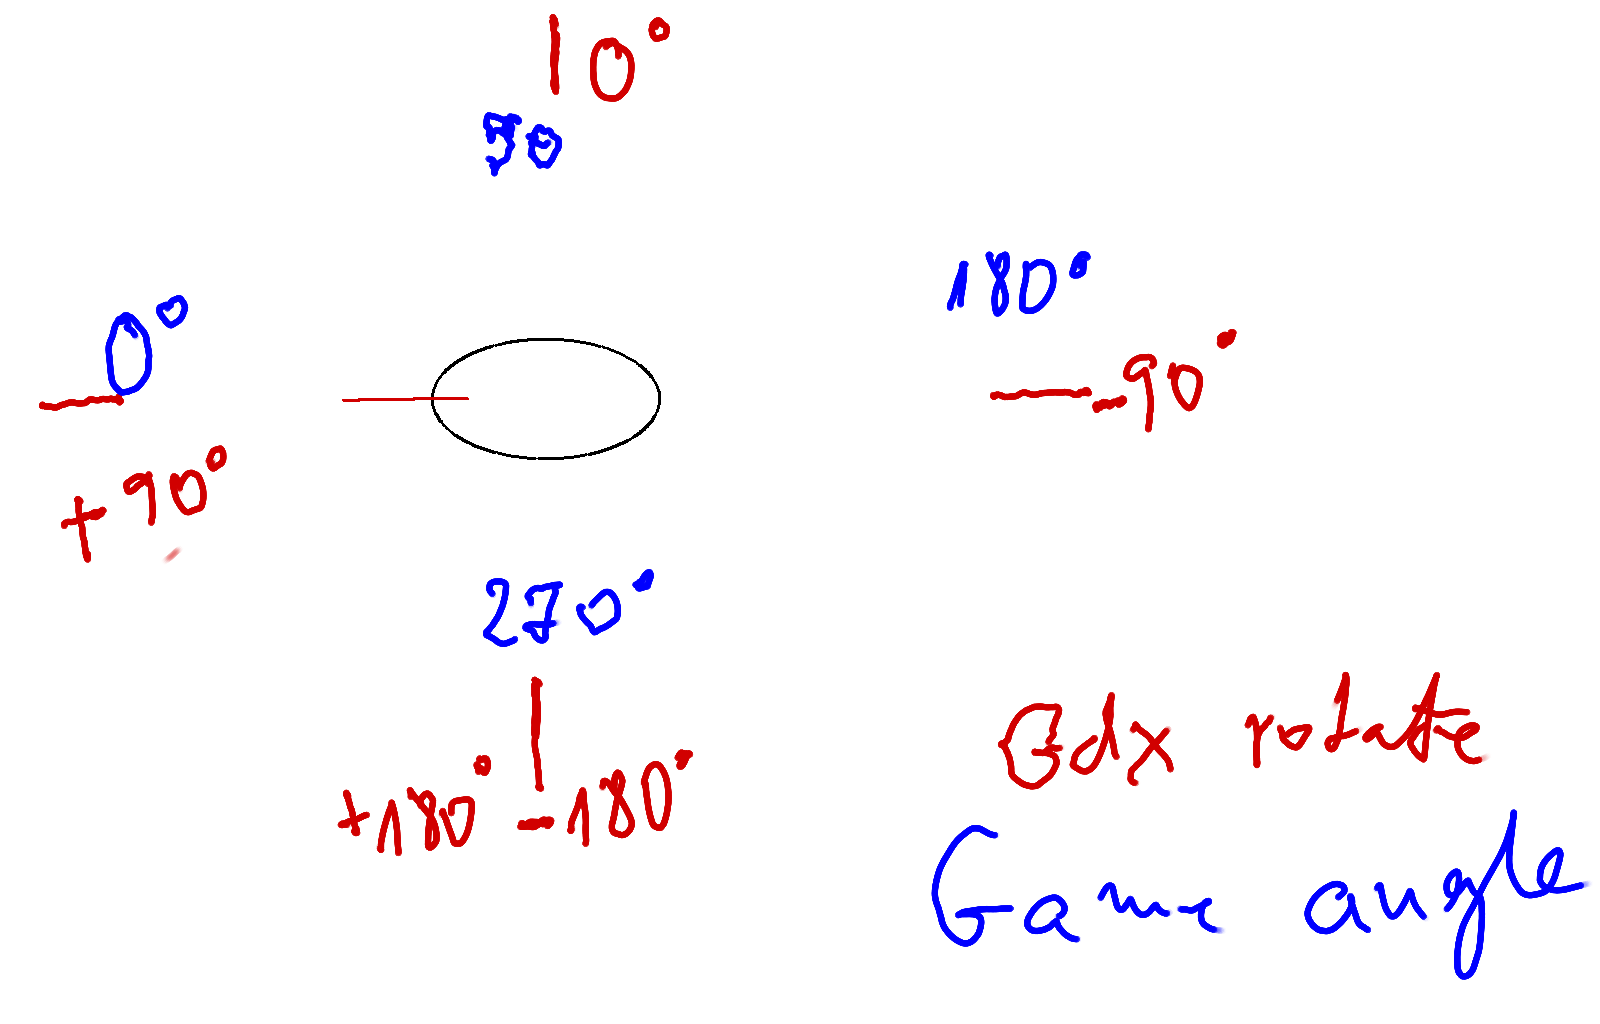 0°
90
180°
0°
-90°
+90°
270°
+180° -180°
Gdx rotate
Game angle